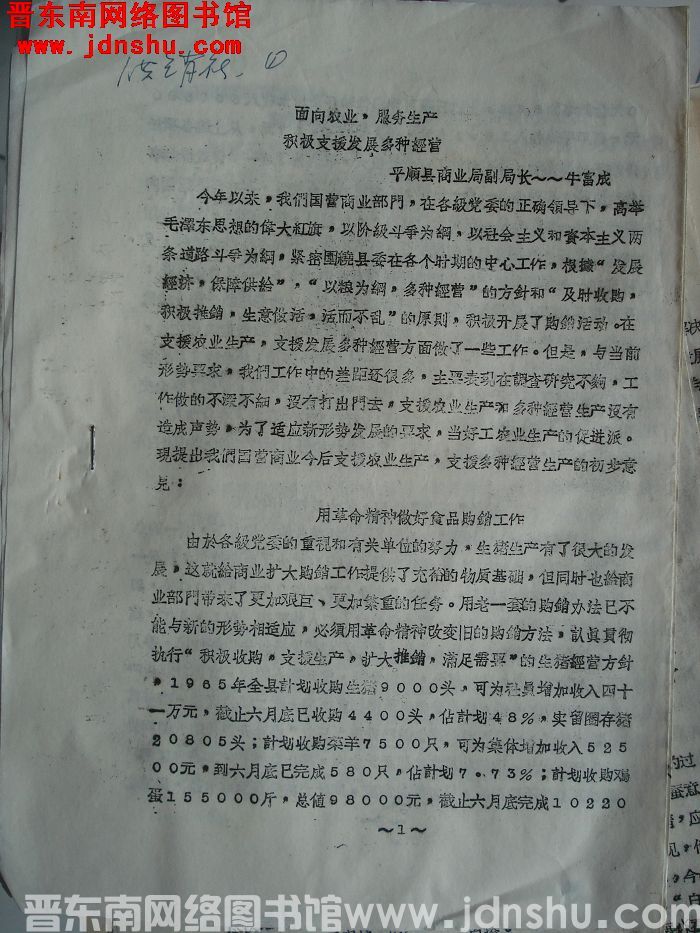 晋东南网络图书馆
www.jdnshu.com
面向农业，服务生产
积极支援发展多种經营
平順县商业局副局长～～牛富成
今年以来，我們国营商业部門，在各級党委的正确领导下，高举
毛澤东思想的偉大紅旗，以阶級斗爭为綱，以社会主义和資本主义两
条道路斗爭为綱，紧密圍繞县委在各个时期的中心工作，根據“发展
經济，保障供給”，“以粮为綱，多种經营”的方針和“及时收购，
积极推銷，生意做活，活而不乱”的原則，积极开展了购銷活动。在
支援农业生产，支援发展多种經营方面做了一些工作。但是，与当前
形势要求，我們工作中的差距还很多，主要表現在調查研究不夠，工
作做的不深不細，沒有打出門去，支援农业生产和多种經营生产沒有
造成声势，为了适应新形势发展的要求，当好工农业生产的促进派。
現提出我們国营商业今后支援农业生产，支援多种經营生产的初步意
見：
用革命精神做好食品购銷工作
由於各級党委的重視和有关单位的努力，生猪生产有了很大的发
展，这就給商业扩大购銷工作提供了充裕的物质基础，但同时也給商
业部門带来了更加艰巨、更加繁重的任务。用老一套的购銷办法已不
能与新的形势相适应，必须用革命精神改变旧的购銷方法，認真貫彻
执行“积极收购，支援生产，扩大推銷，滿足需要”的生猪經营方針
，1965年全县計划收购生猪9000头，可为社員增加收入四十
一万元，截止六月底已收购4400头，佔計划48％，实留圈存猪
20805头；計划收购菜羊7500只，可为集体增加收入525
00元，到六月底已完成580只，佔計划7．73％；計划收购鸡
蛋155000斤，总値98000元，截止六月底完成10220
～1～
晋东南网络图书馆www.jdnshu.com